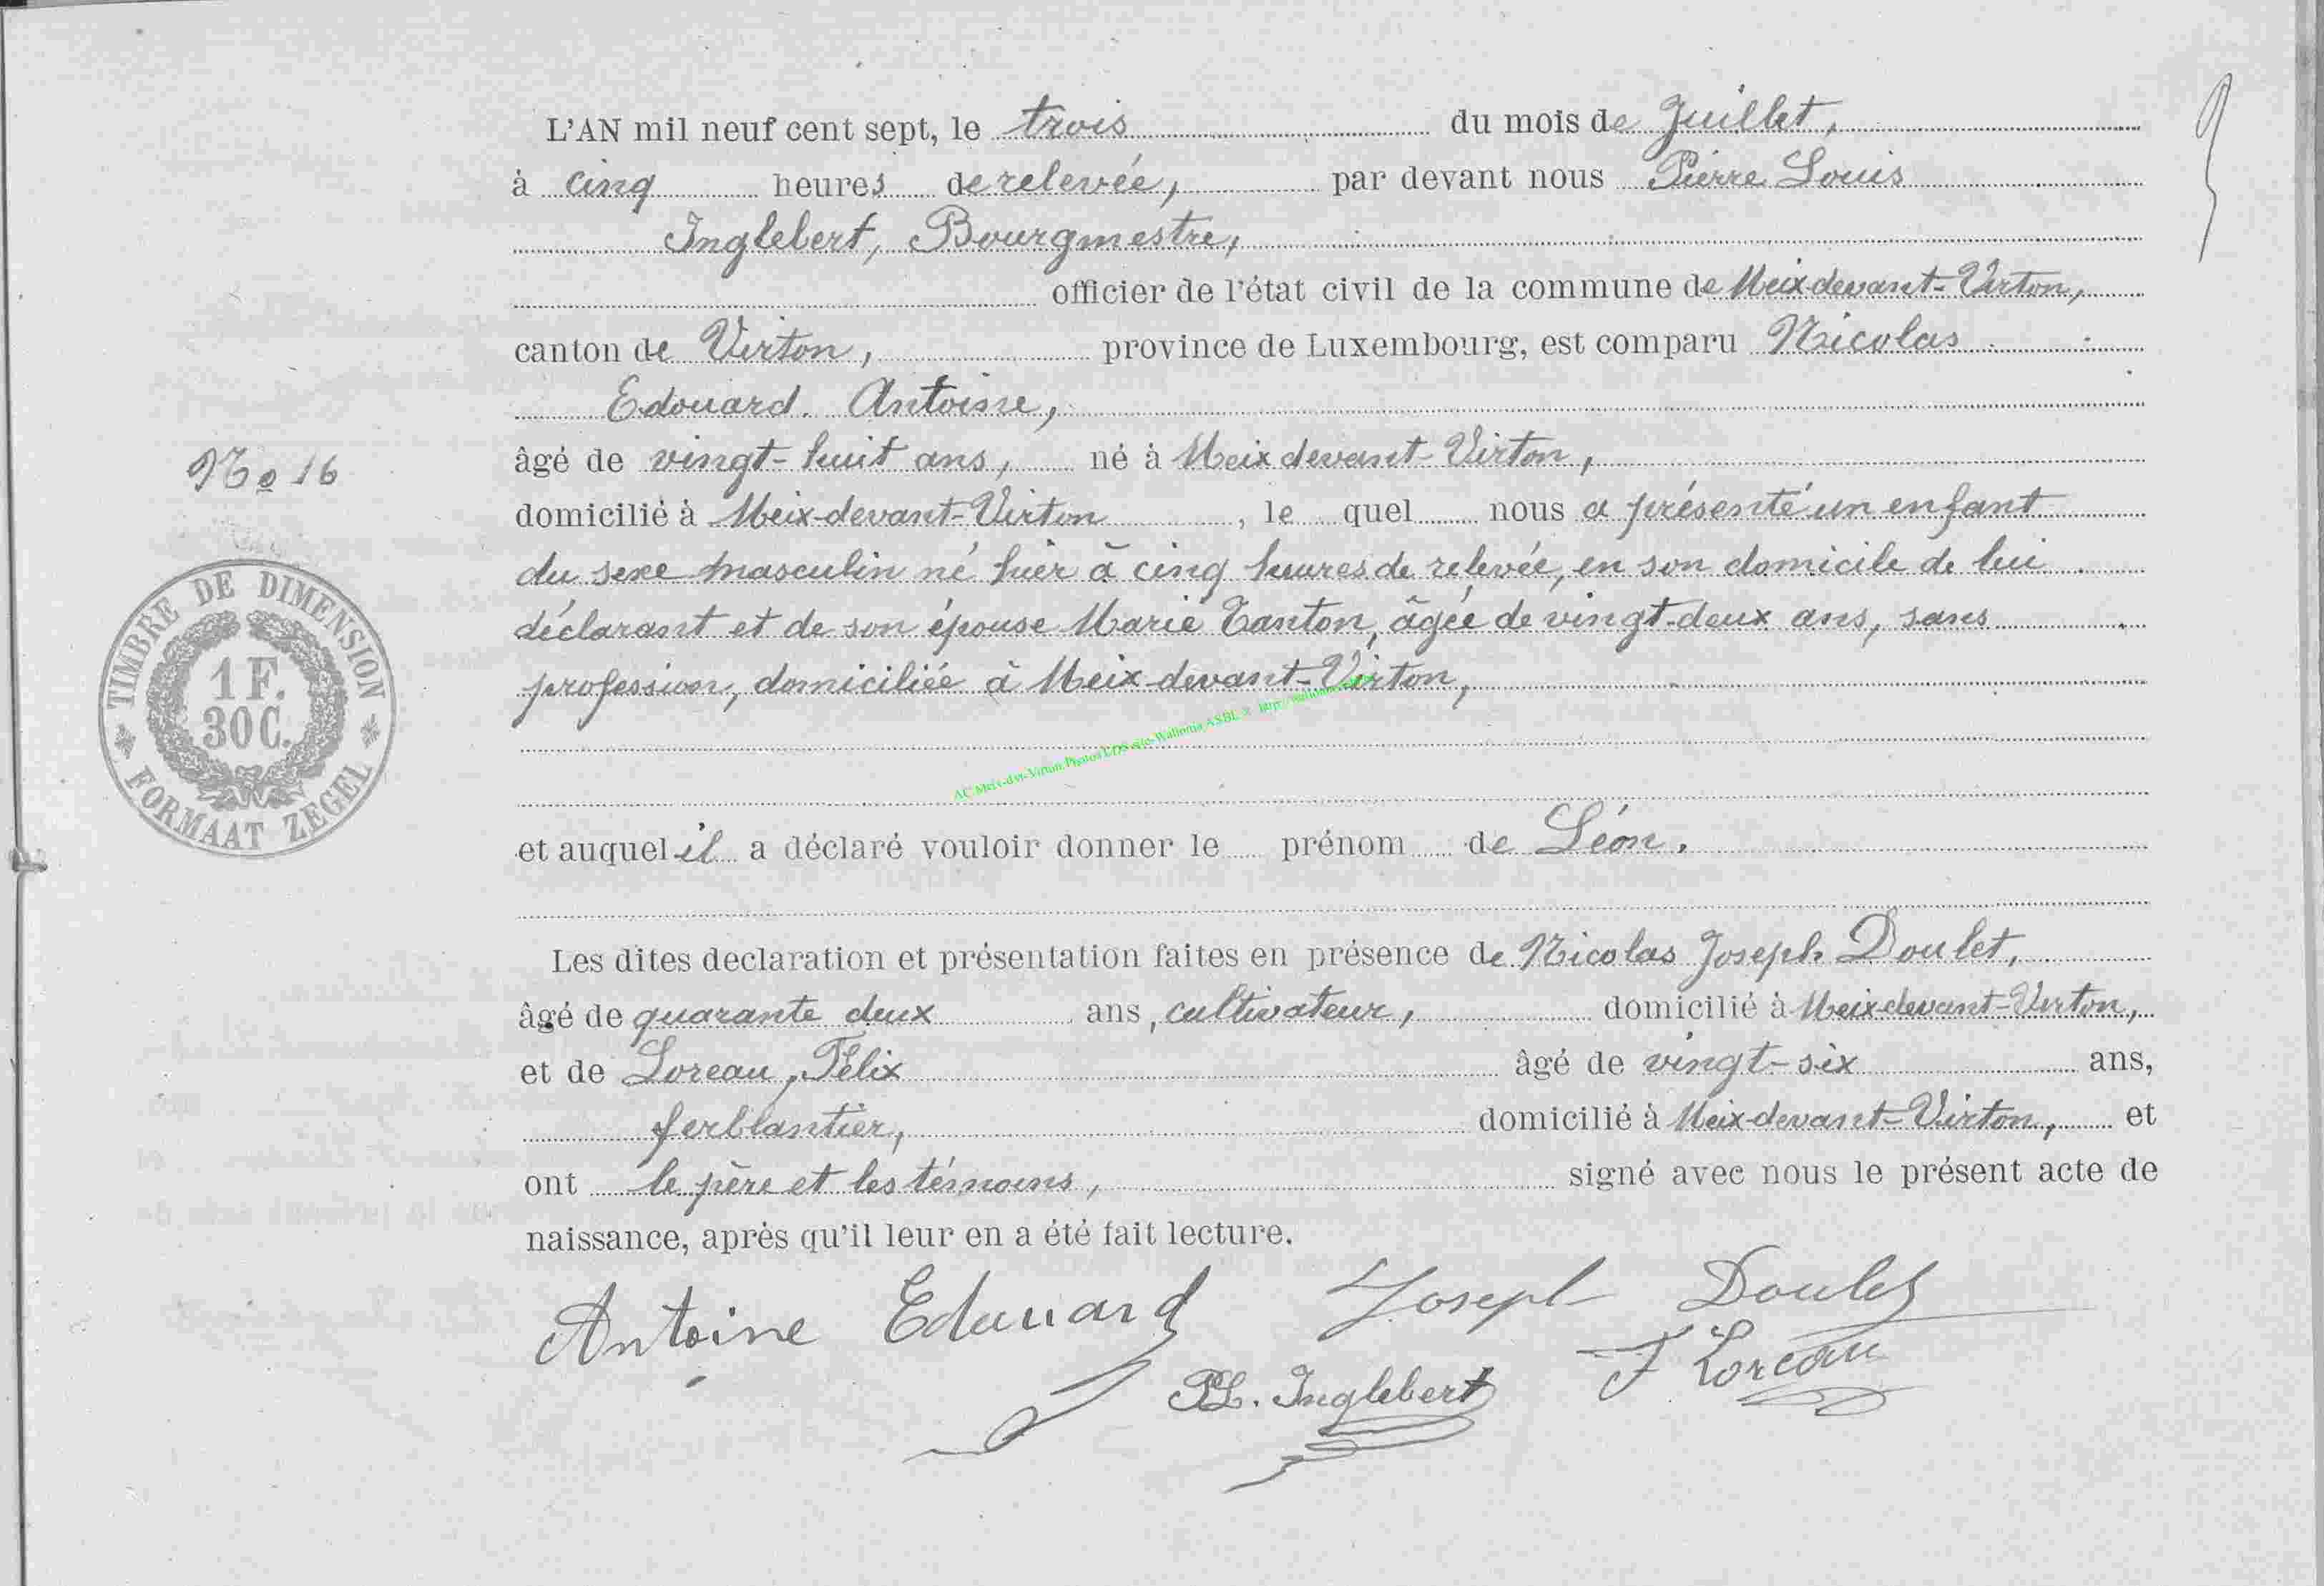 L'AN mil neuf cent sept, le trois du mois de Juillet,
à cinq heures de relevée, par devant nous Pierre Louis
Inglebert, Bourgmestre,
officier de l'état civil de la commune de Meix-devant-Virton,
canton de Virton, province de Luxembourg, est comparu Nicolas
Edouard Antoine,
âgé de vingt-huit ans, né à Meix devant-Virton,
domicilié à Meix-devant-Virton, le quel nous a présenté un enfant
du sexe masculin né hier à cinq heures de relevée, en son domicile de lui
déclarant et de son épouse Marie Tanton, âgée de vingt-deux ans, sans
profession, domiciliée à Meix-devant-Virton,
et auquel il a déclaré vouloir donner le prénom de Léon.
Les dites declaration et présentation faites en présence de Nicolas Joseph Doulet,
âgé de quarante deux ans, cultivateur, domicilié à Meix-devant-Virton,
et de Loreau, Félix âgé de vingt-six ans,
ferblantier, domicilié à Meix-devant-Virton, et
ont le père et les témoins, signé avec nous le présent acte de
naissance, après qu'il leur en a été fait lecture.
Antoine Edouard Joseph Doulet
PL. Inglebert F Loreau
No 16
TIMBRE DE DIMENSION
1 F.
30 C.
FORMAAT ZEGEL
AC Meix-dvt-Virton Photos LDS Wallonia ASBL